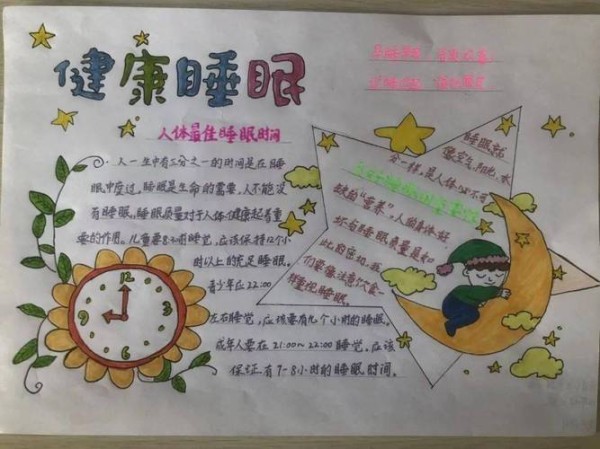 健康睡眠
人体最佳睡眠时间
人一生中有三分之一的时间是在睡
眠中度过，睡眠是生命的需要，人不能没
有睡眠，睡眠质量对于人体健康起着重
要的作用。儿童要8:30前睡觉，应该保持12个小
时以上的充足睡眠。
青少年应22:00
左右睡觉，应该要有九个小时的睡眠。
成年人要在21:00~22:00睡觉，应该
保证有7-8小时的睡眠时间。
12
3
6
9
睡眠就
像空气、阳光、水
分一样，是人体必不可
缺的“营养”。人的身体好
坏与睡眠质量息息相
此的密切，我
们要像注意饮食一
样重视睡眠。